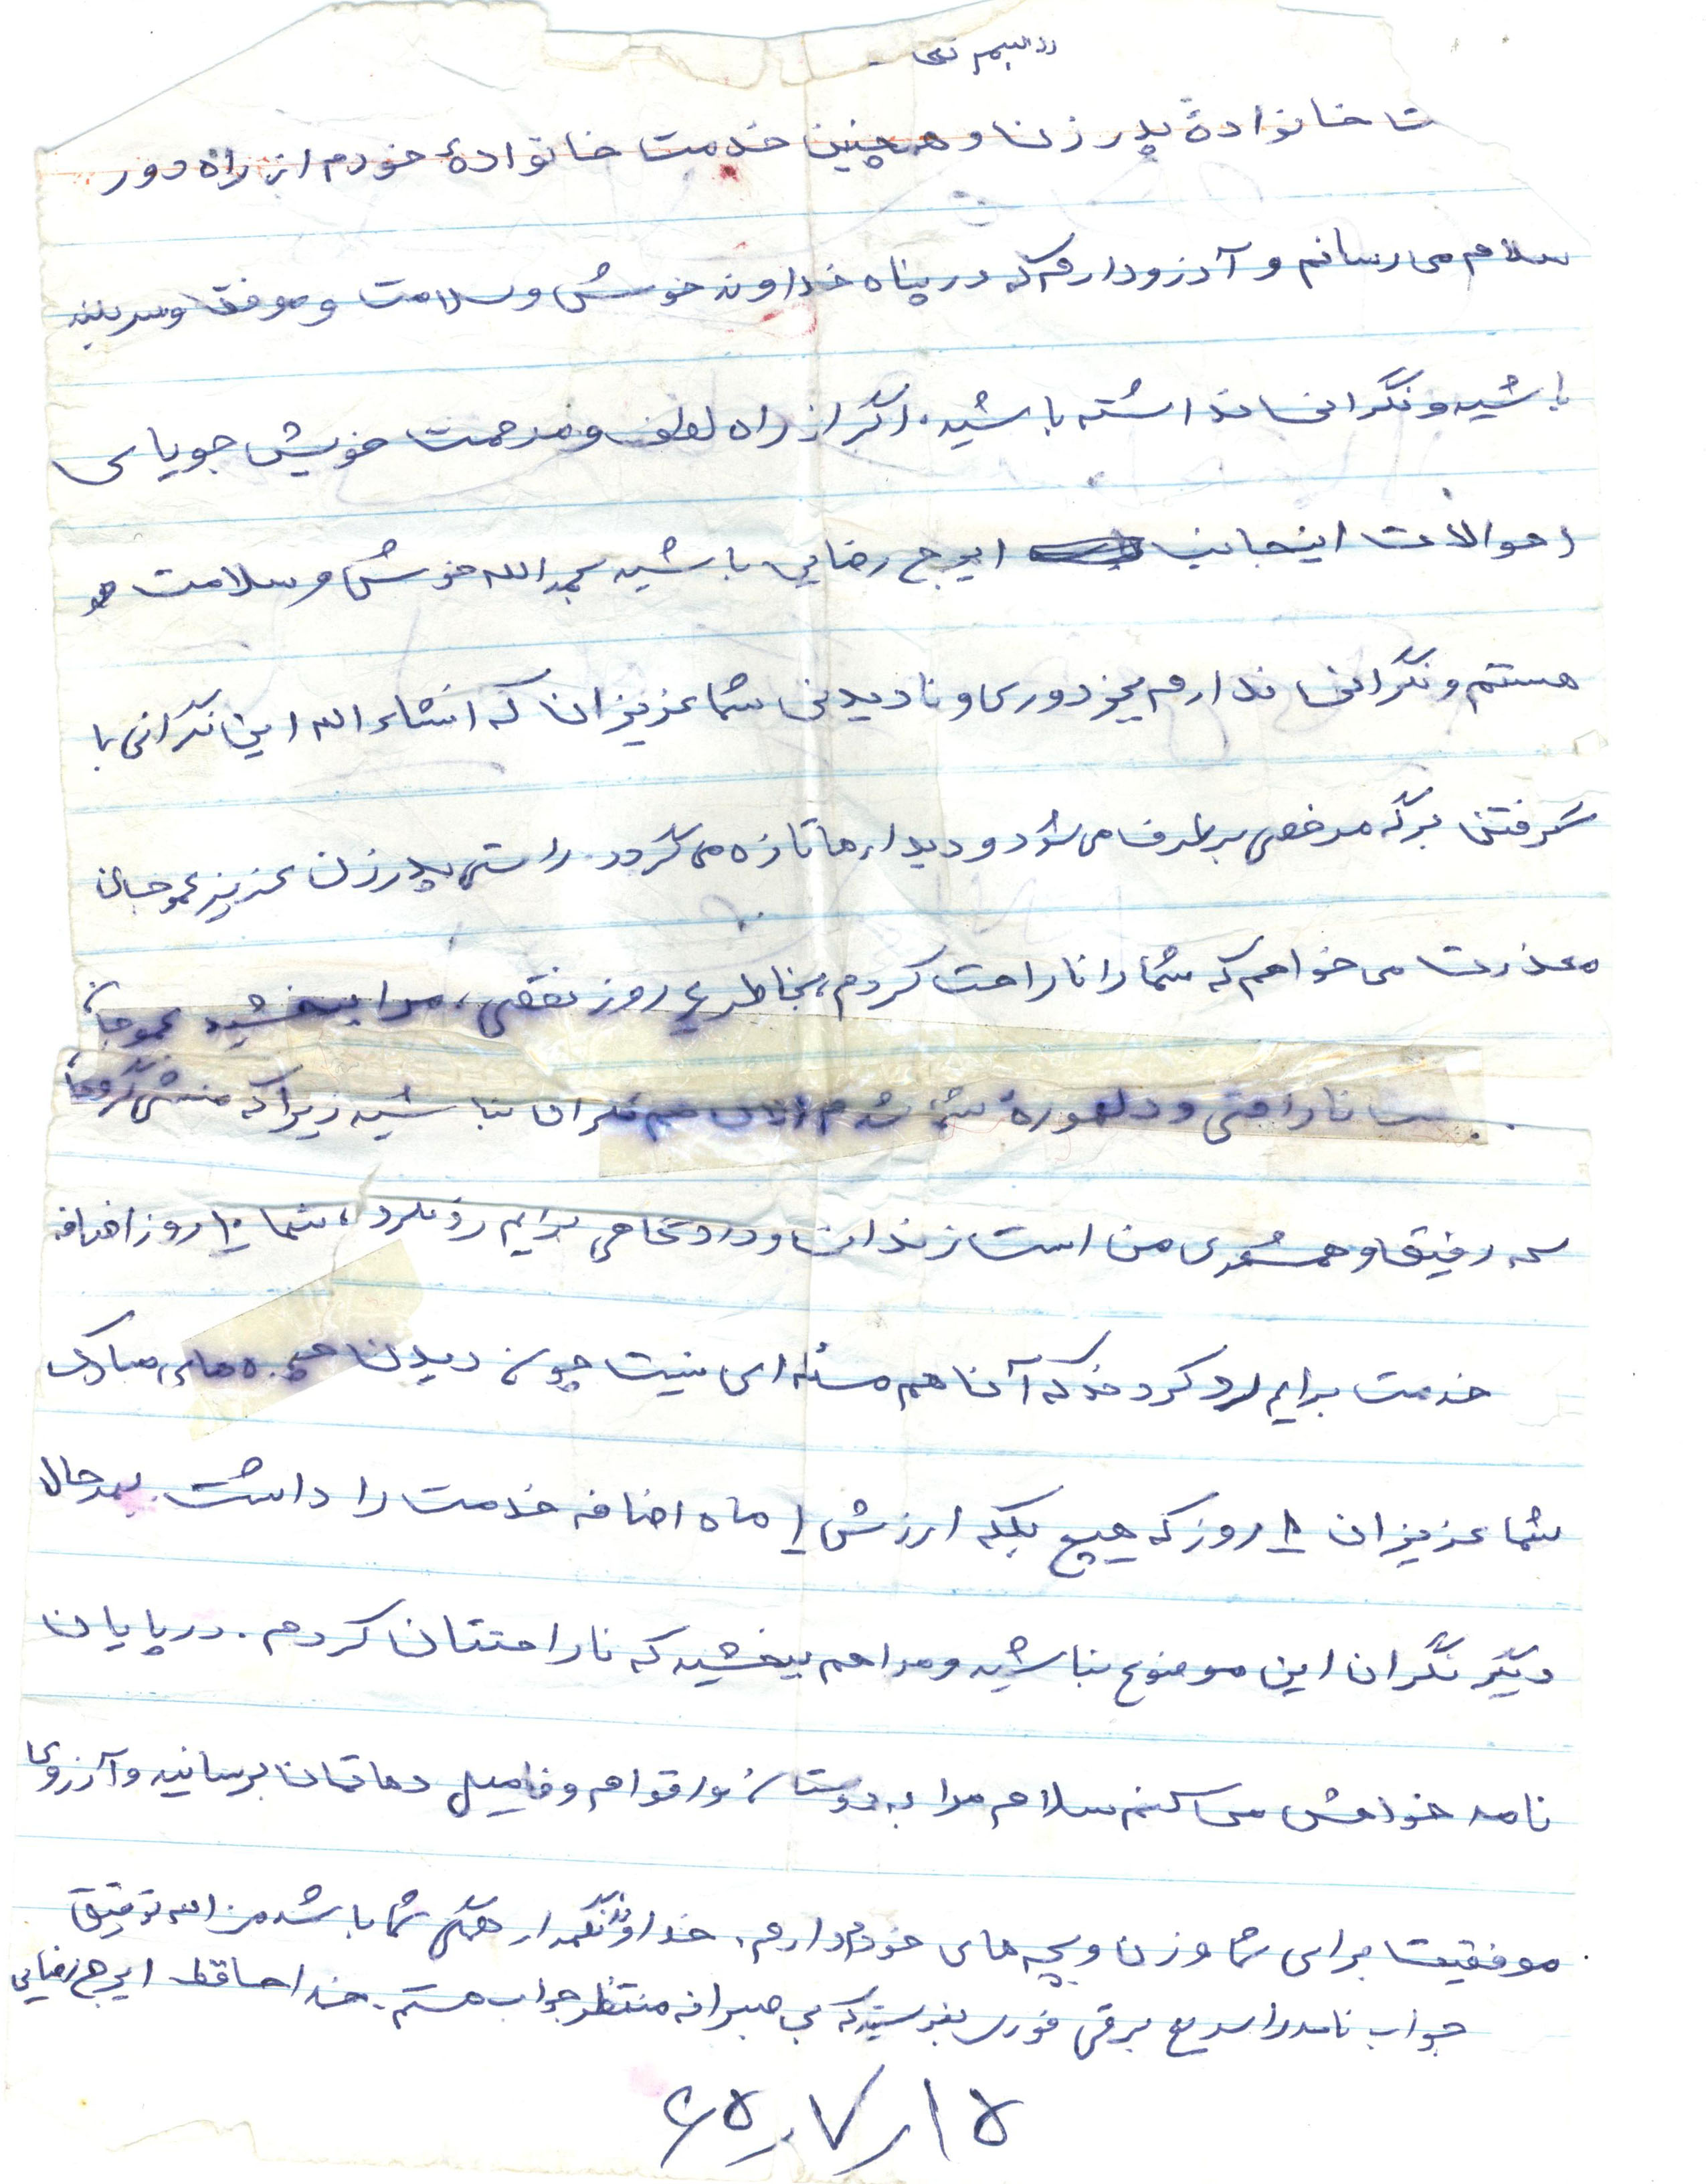 بسمه تعالی
ت خانوادهٔ پدر زن و همچنین خدمت خانوادهٔ خودم از راه دور
سلام می رسانم و آرزو دارم که در پناه خداوند خوش و سلامت و موفق و سربلند
باشید و نگرانی نداشته باشید. اگر از راه لطف و مرحمت خویش جویای
احوالات اینجانب ایرج رضایی باشید بحمدالله خوش و سلامت
هستم و نگرانی ندارم بجز دوری و نادیدنی شما عزیزان که انشاءالله این نگرانی با
گرفتن برگه مرخصی برطرف می شود و دیدارها تازه می گردد. راستی پدر زن عزیز عمو جان
معذرت می خواهم که شما را ناراحت کردم، بخاطر ۴ روز نهستی، مرا ببخشید عمو جان
ناراحتی و دلهورهٔ شما شدم الان هم نگران نباشید زیرا که منشی گروهان
که رفیق و همشهری من است زندان و درد تنهایی برایم رد نکرد، تنها ۱۰ روز اضافه
خدمت برایم رد کردند که آن هم مسئله ای نیست چون دیدن چهره های مبارک
شما عزیزان ۱۰ روز که هیچ بلکه ارزش ۱ ماه اضافه خدمت را داشت. بهرحال
دیگر نگران این موضوع نباشید و مرا هم ببخشید که ناراحتتان کردم. در پایان
نامه خواهش می کنم سلام مرا به دوستان و اقوام و فامیل دهاتمان برسانید و آرزوی
موفقیت برای شما و زن و بچه های خودم دارم. خداوند نگهدار همگی شما باشد من الله توفیق
جواب نامه را سریع برقی فوری بفرستید که بی صبرانه منتظر جواب هستم. خداحافظ ایرج رضایی
۶۵/۷/۱۵